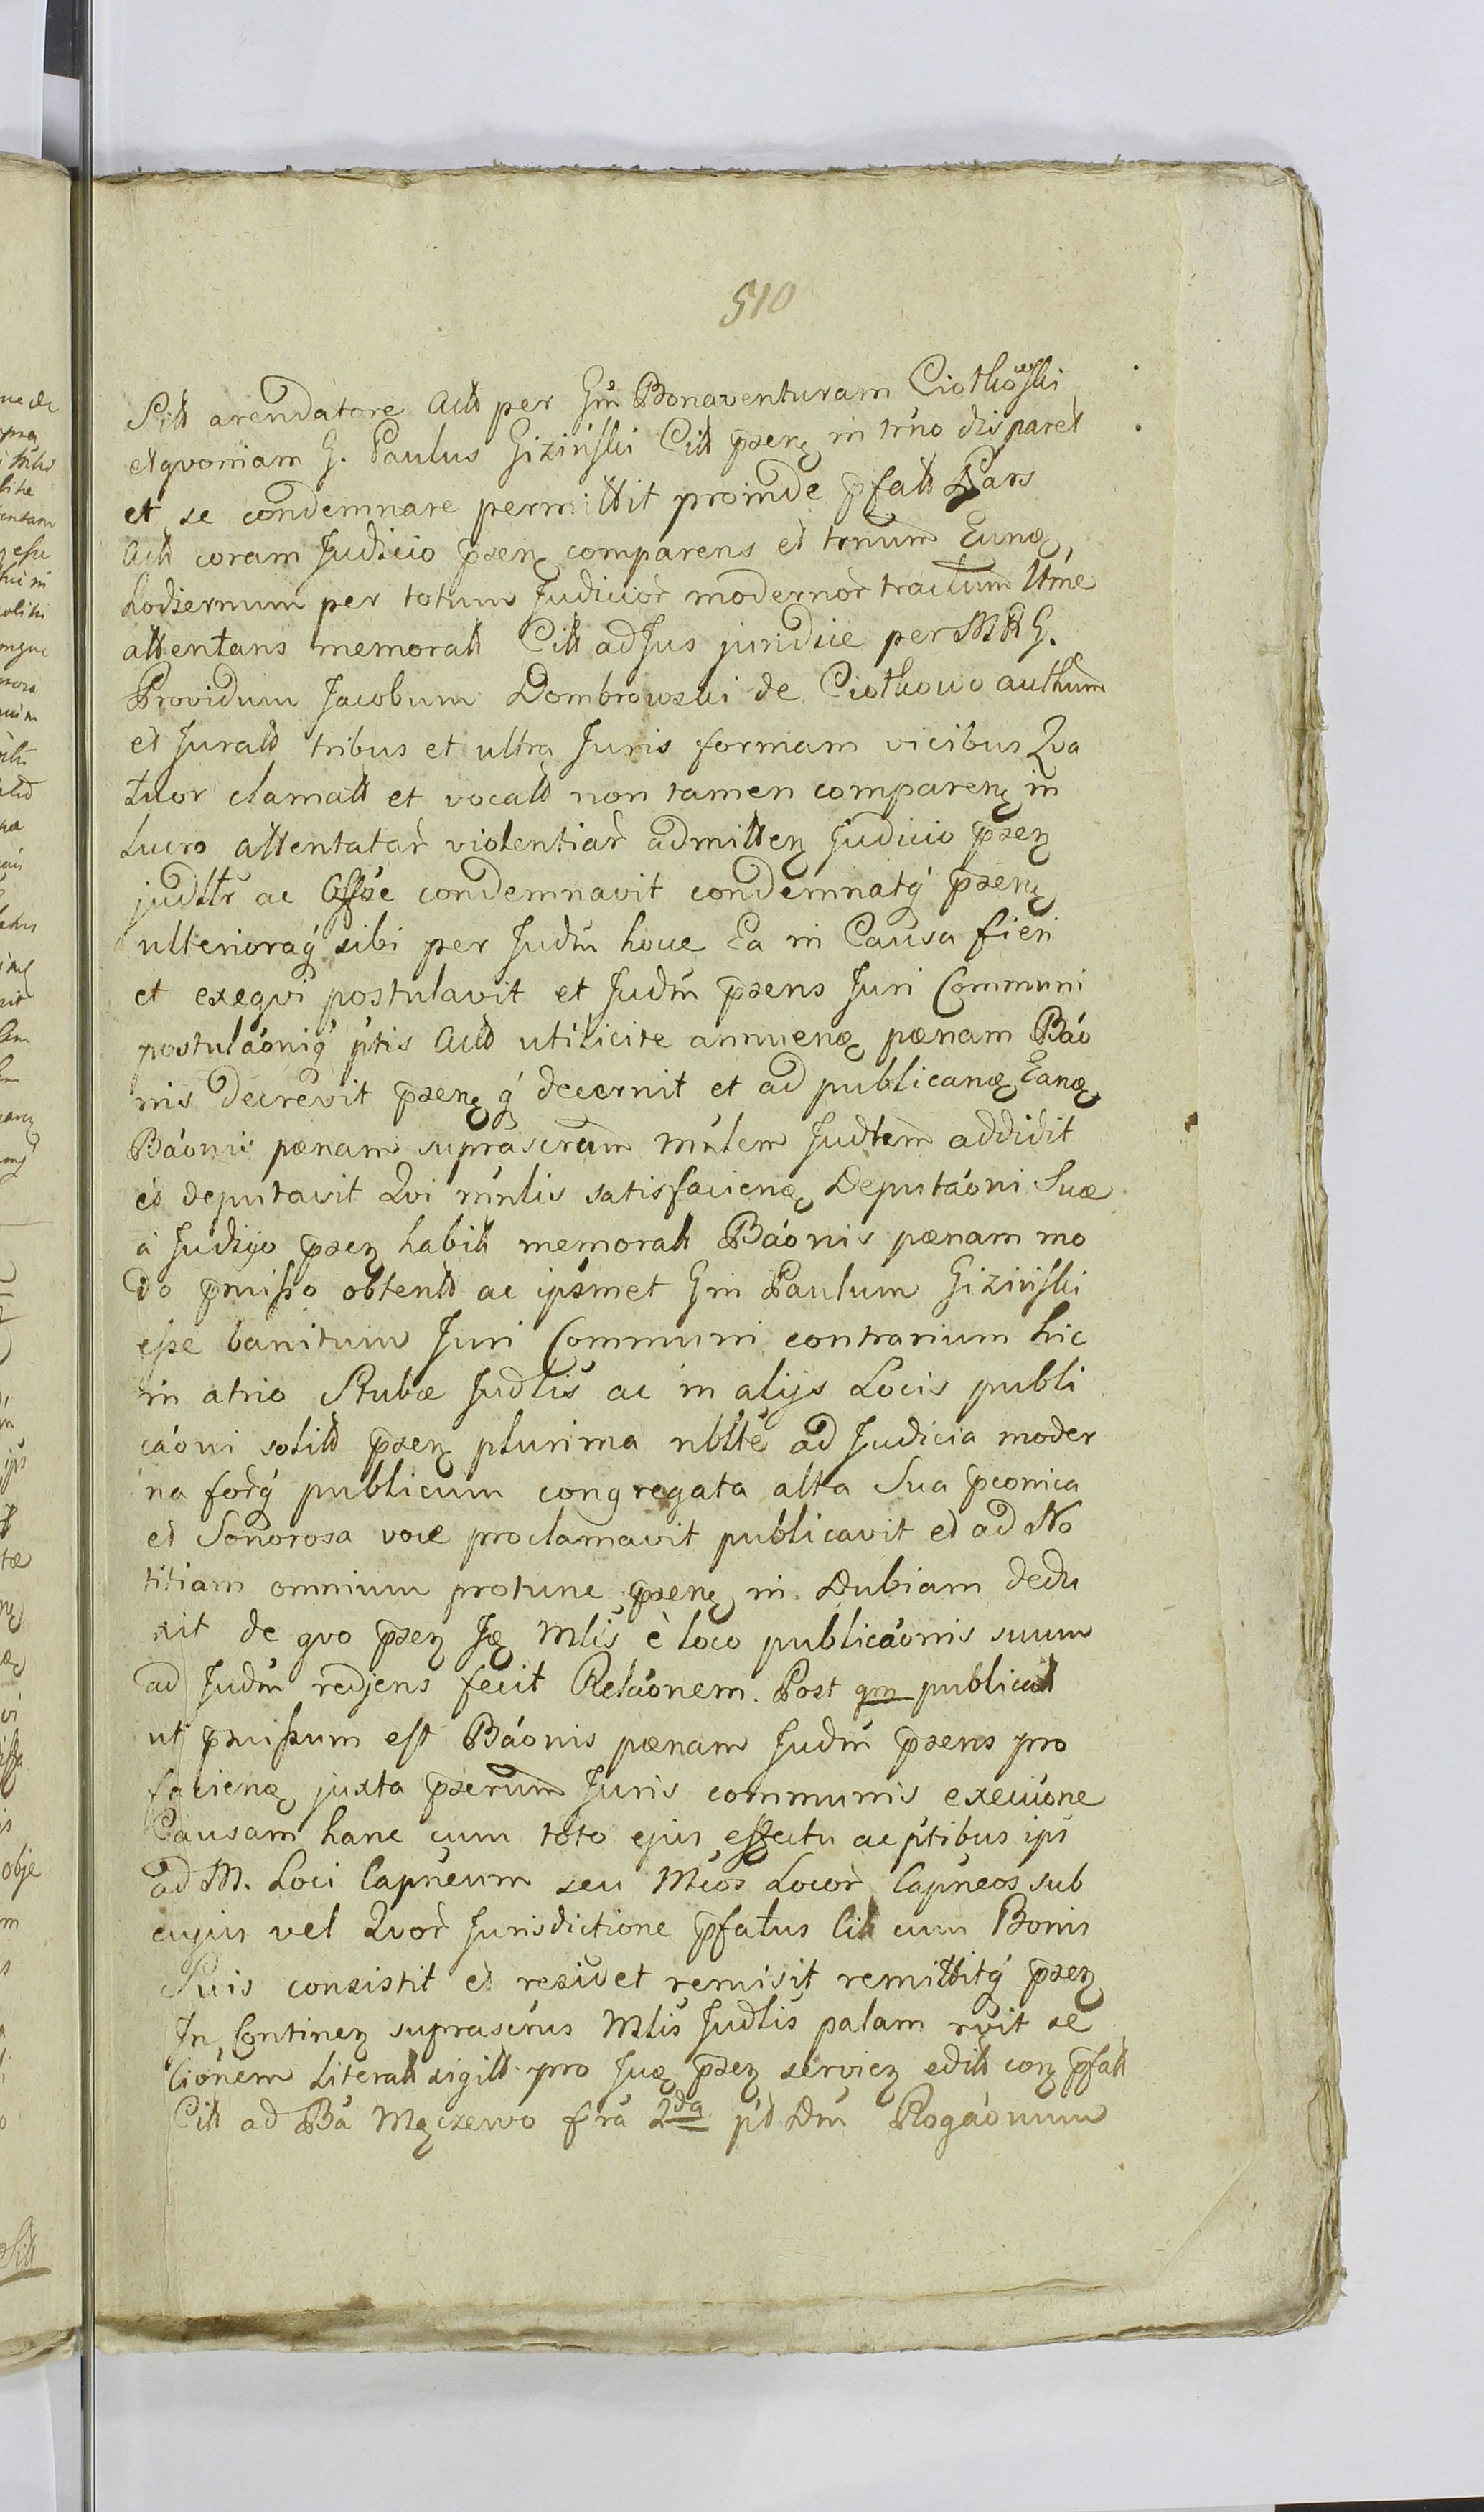 510
Sitt arendatore Actt per Gm̃ Bonaventuram Ciotkowski
etqvoniam G. Paulus Giziński Citt pxens in tr̃no dis paret
et se condemnare permittit proinde pfatt Pars
Actt coram Judicio pxenz comparens et trnum Eund
hodiernum per totum Judicior modernor tractum Ltme
attentans memoratt Citt ad Jus juridice per M R G.
Providum Jacobum Dombrowski de Ciotkowo authum
et Juratt tribus et ultra Juris formam vicibus Qva
tuor clamatt et vocatt non tamen comparenz in
Lucro attentatar violentiar admittenz Judicio pxenz
judltr ac Offõse condemnavit condemnatq pxenz
ulterioraq sibi per Judm̃ hocce Ea in Causa fieri
et exeqvi postulavit et Judm̃ pxens Juri Communi
postulãoniq ptis Actt utilicite annuens pænam Bão
nis decrevit pxensq decernit et ad publicand Eand
Bãonis pænam suprascrum Mnlem Judlem addidit
et deputavit Qvi mnlis satisfaciens Deputãoni Suæ
à Judizio pxenz habitt memoratt Bãonis pænam mo
do pmisso obtentt ac ipsmet Gm Paulum Giziński
esse banitum Juri Communi contrarium hic
in atrio Stubæ Judlis ac in alijs Locis publi
cãoni solitt pxenz plurima nbltte ad Judicia moder
na forq publicum congregata alta Sua pconica
et Sonorosa voce proclamavit publicavit et ad No
titiam omnium protunc pxenz in Dubiam dedu
xit de qvo pxenz Jdz Mlis è loco publicãonis suum
ad Judm̃ redjens fecit Relãonem. Post qm publicatt
ut pmissum est Bãonis pænam Judm̃ pxens pro
faciend juxta pxerum Juris communis execuone
Causam hanc cum toto ejus effectu ac ptibus ips
ad M. Loci Capneum seu Mcos Locor Capneos sub
cujus vel Qvor Jurisdictione pfatus Citt cum Bonis
Suis consistit et residet remisit remittitq pxenz
In Continenz suprascrus Mlis Judlis palam rvit se
Cionem Literatt sigitt pro Juz pxenz servienz editt conz pfatt
Citt ad Bã Męczewo frã 2da pst Dm̃ Rogãonum